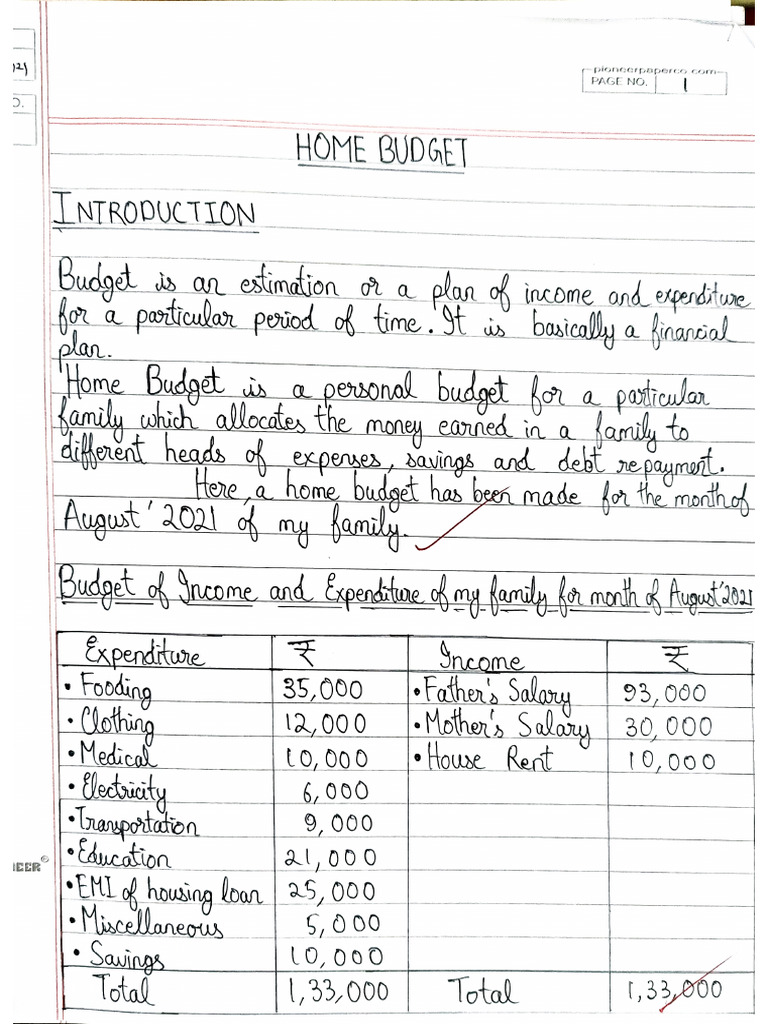 021
O.
pioneerpaperco.com
PAGE NO. 1
HOME BUDGET
INTRODUCTION
Budget is an estimation or a plan of income and expenditure
for a particular period of time. It is basically a financial
plan.
Home Budget is a personal budget for a particular
family which allocates the money earned in a family to
different heads of expenses, savings and debt repayment.
Here, a home budget has been made for the month of
August' 2021 of my family.
Budget of Income and Expenditure of my family for month of August'2021
Expenditure ₹ Income ₹
• Fooding 35,000 • Father's Salary 93,000
• Clothing 12,000 • Mother's Salary 30,000
• Medical 10,000 • House Rent 10,000
• Electricity 6,000
• Transportation 9,000
• Education 21,000
• EMI of housing loan 25,000
• Miscellaneous 5,000
• Savings 10,000
Total 1,33,000 Total 1,33,000